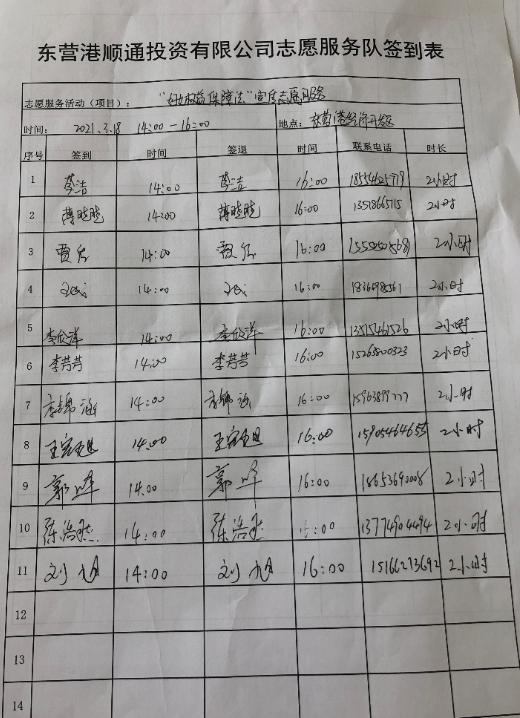 东营港顺通投资有限公司志愿服务队签到表
志愿服务活动（项目）： 权益保障法"宣传志愿服务
时间： 2021.3.18 14:00-16:00 地点： 东营港经济开发区
序号 签到 时间 签退 时间 联系电话 时长
1 洁 14:00 洁 16:00 2小时
2 薄晓晓 14:00 薄晓晓 16:00 2小时
3 贾 14:00 贾 16:00 2小时
4 14:00 16:00 2小时
5 李 洋 14:00 李 洋 16:00 13515461526 2小时
6 李芳芳 14:00 李芳芳 16:00 15263800323 2小时
7 14:00 16:00 15963899777 2小时
8 王 14:00 王 16:00 15905464655 2小时
9 郭峰 14:00 郭峰 16:00 18653690008 2小时
10 陈浩 14:00 陈浩 :00 13774904494 2小时
11 刘旭 14:00 刘旭 16:00 15166273692 2小时
12
13
14